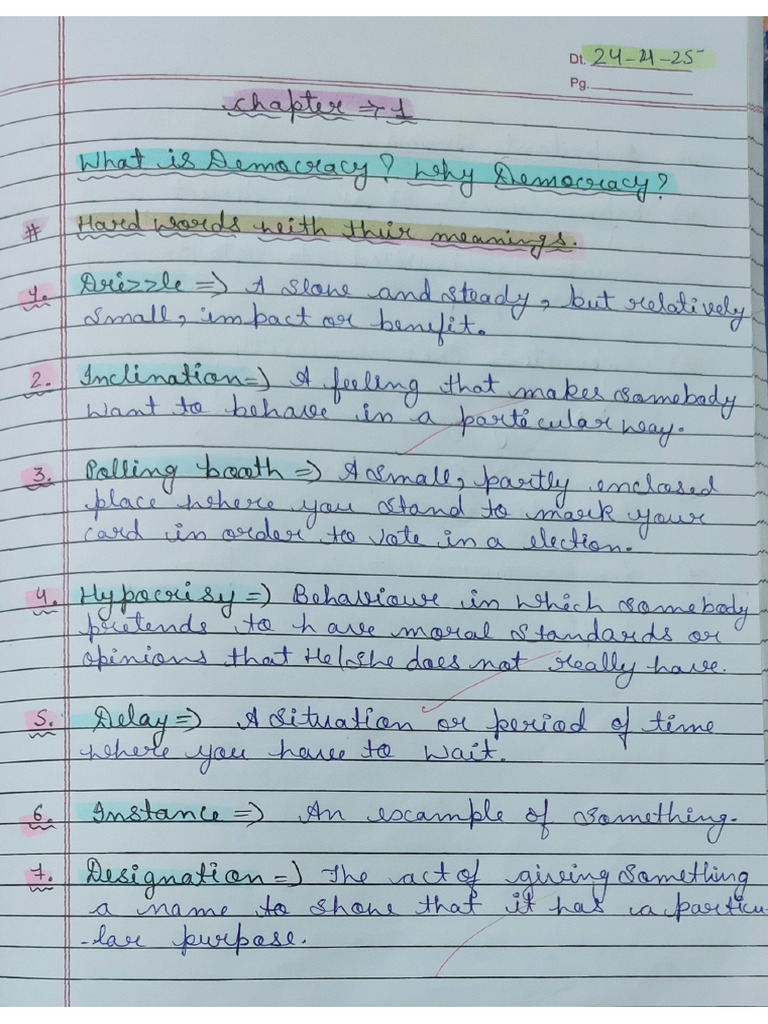 Dt. 24-4-25
Pg.
Chapter → 1
What is Democracy? Why Democracy?
# Hard words with their meanings.
1. Drizzle ⇒ A slow and steady, but relatively
small, impact or benefit.
2. Inclination ⇒ A feeling that makes somebody
want to behave in a particular way.
3. Polling booth ⇒ A small, partly enclosed
place where you stand to mark your
card in order to vote in a election.
4. Hypocrisy ⇒ Behaviour in which somebody
pretends to have moral standards or
opinions that He/she does not really have.
5. Delay ⇒ A situation or period of time
where you have to wait.
6. Instance ⇒ An example of something.
7. Designation ⇒ The act of giving something
a name to show that it has a particu-
-lar purpose.